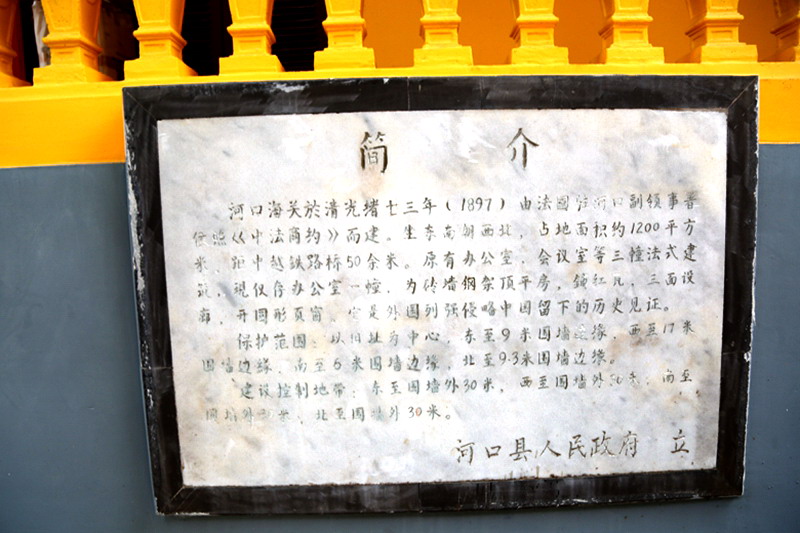 简 介
河口海关於清光绪七三年（1897）由法國驻河口副领事普
依照《中法商约》而建。坐东南朝西北，占地面积约1200平方
米，距中越铁路桥50余米。原有办公室，会议室等三幢法式建
筑，现仅存办公室一幢，为砖墙钢架顶平房，铺红瓦，三面设
廊，开圆形页窗，它是外国列强侵略中国留下的历史见证。
保护范围：以旧址为中心，东至9米围墙边缘，西至17米
围墙边缘，南至6米围墙边缘，北至9.3米围墙边缘。
建设控制地带：东至围墙外30米，西至围墙外30米，南至
围墙外 米，北至围墙外30米。
河口县人民政府 立